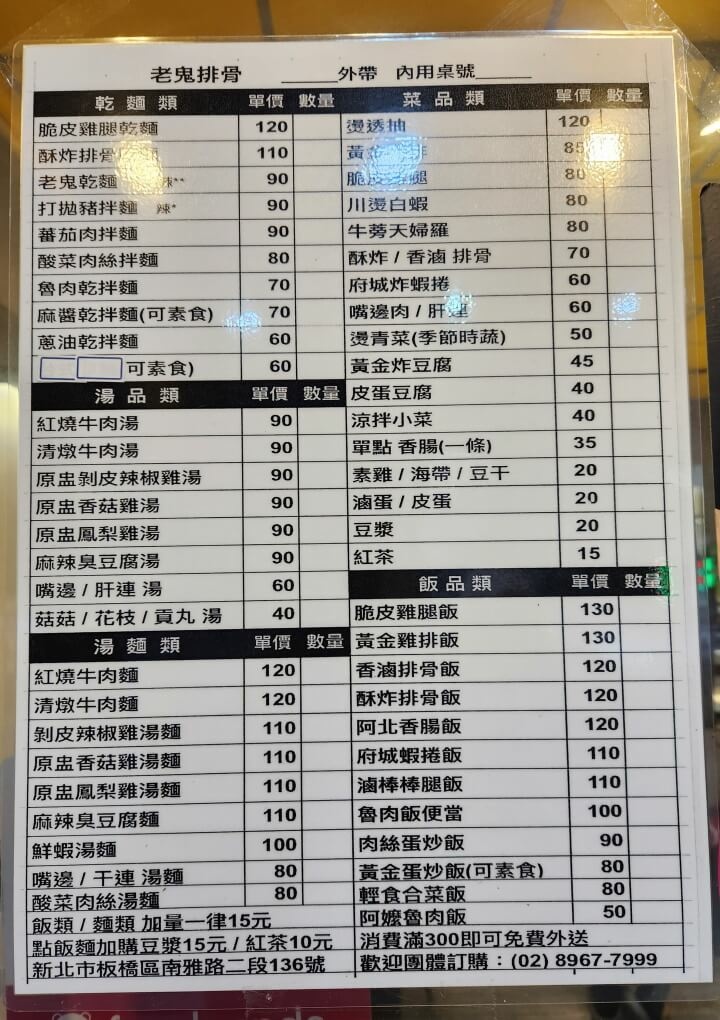 老鬼排骨 ______外帶 內用桌號______
乾麵類 單價 數量
脆皮雞腿乾麵 120
酥炸排骨 110
老鬼乾麵 辣** 90
打拋豬拌麵 辣* 90
蕃茄肉拌麵 90
酸菜肉絲拌麵 80
魯肉乾拌麵 70
麻醬乾拌麵(可素食) 70
蔥油乾拌麵 60
可素食) 60
湯品類 單價 數量
紅燒牛肉湯 90
清燉牛肉湯 90
原盅剝皮辣椒雞湯 90
原盅香菇雞湯 90
原盅鳳梨雞湯 90
麻辣臭豆腐湯 90
嘴邊 / 肝連 湯 60
菇菇 / 花枝 / 貢丸 湯 40
湯麵類 單價 數量
紅燒牛肉麵 120
清燉牛肉麵 120
剝皮辣椒雞湯麵 110
原盅香菇雞湯麵 110
原盅鳳梨雞湯麵 110
麻辣臭豆腐麵 110
鮮蝦湯麵 100
嘴邊 / 干連 湯麵 80
酸菜肉絲湯麵 80
飯類 / 麵類 加量一律15元
點飯麵加購豆漿15元 / 紅茶10元
新北市板橋區南雅路二段136號
菜品類 單價 數量
燙透抽 120
黃金 85
脆皮 腿 80
川燙白蝦 80
牛蒡天婦羅 80
酥炸 / 香滷 排骨 70
府城炸蝦捲 60
嘴邊肉 / 肝連 60
燙青菜(季節時蔬) 50
黃金炸豆腐 45
皮蛋豆腐 40
涼拌小菜 40
單點 香腸(一條) 35
素雞 / 海帶 / 豆干 20
滷蛋 / 皮蛋 20
豆漿 20
紅茶 15
飯品類 單價 數量
脆皮雞腿飯 130
黃金雞排飯 130
香滷排骨飯 120
酥炸排骨飯 120
阿北香腸飯 120
府城蝦捲飯 110
滷棒棒腿飯 110
魯肉飯便當 100
肉絲蛋炒飯 90
黃金蛋炒飯(可素食) 80
輕食合菜飯 80
阿嬤魯肉飯 50
消費滿300即可免費外送
歡迎團體訂購：(02) 8967-7999